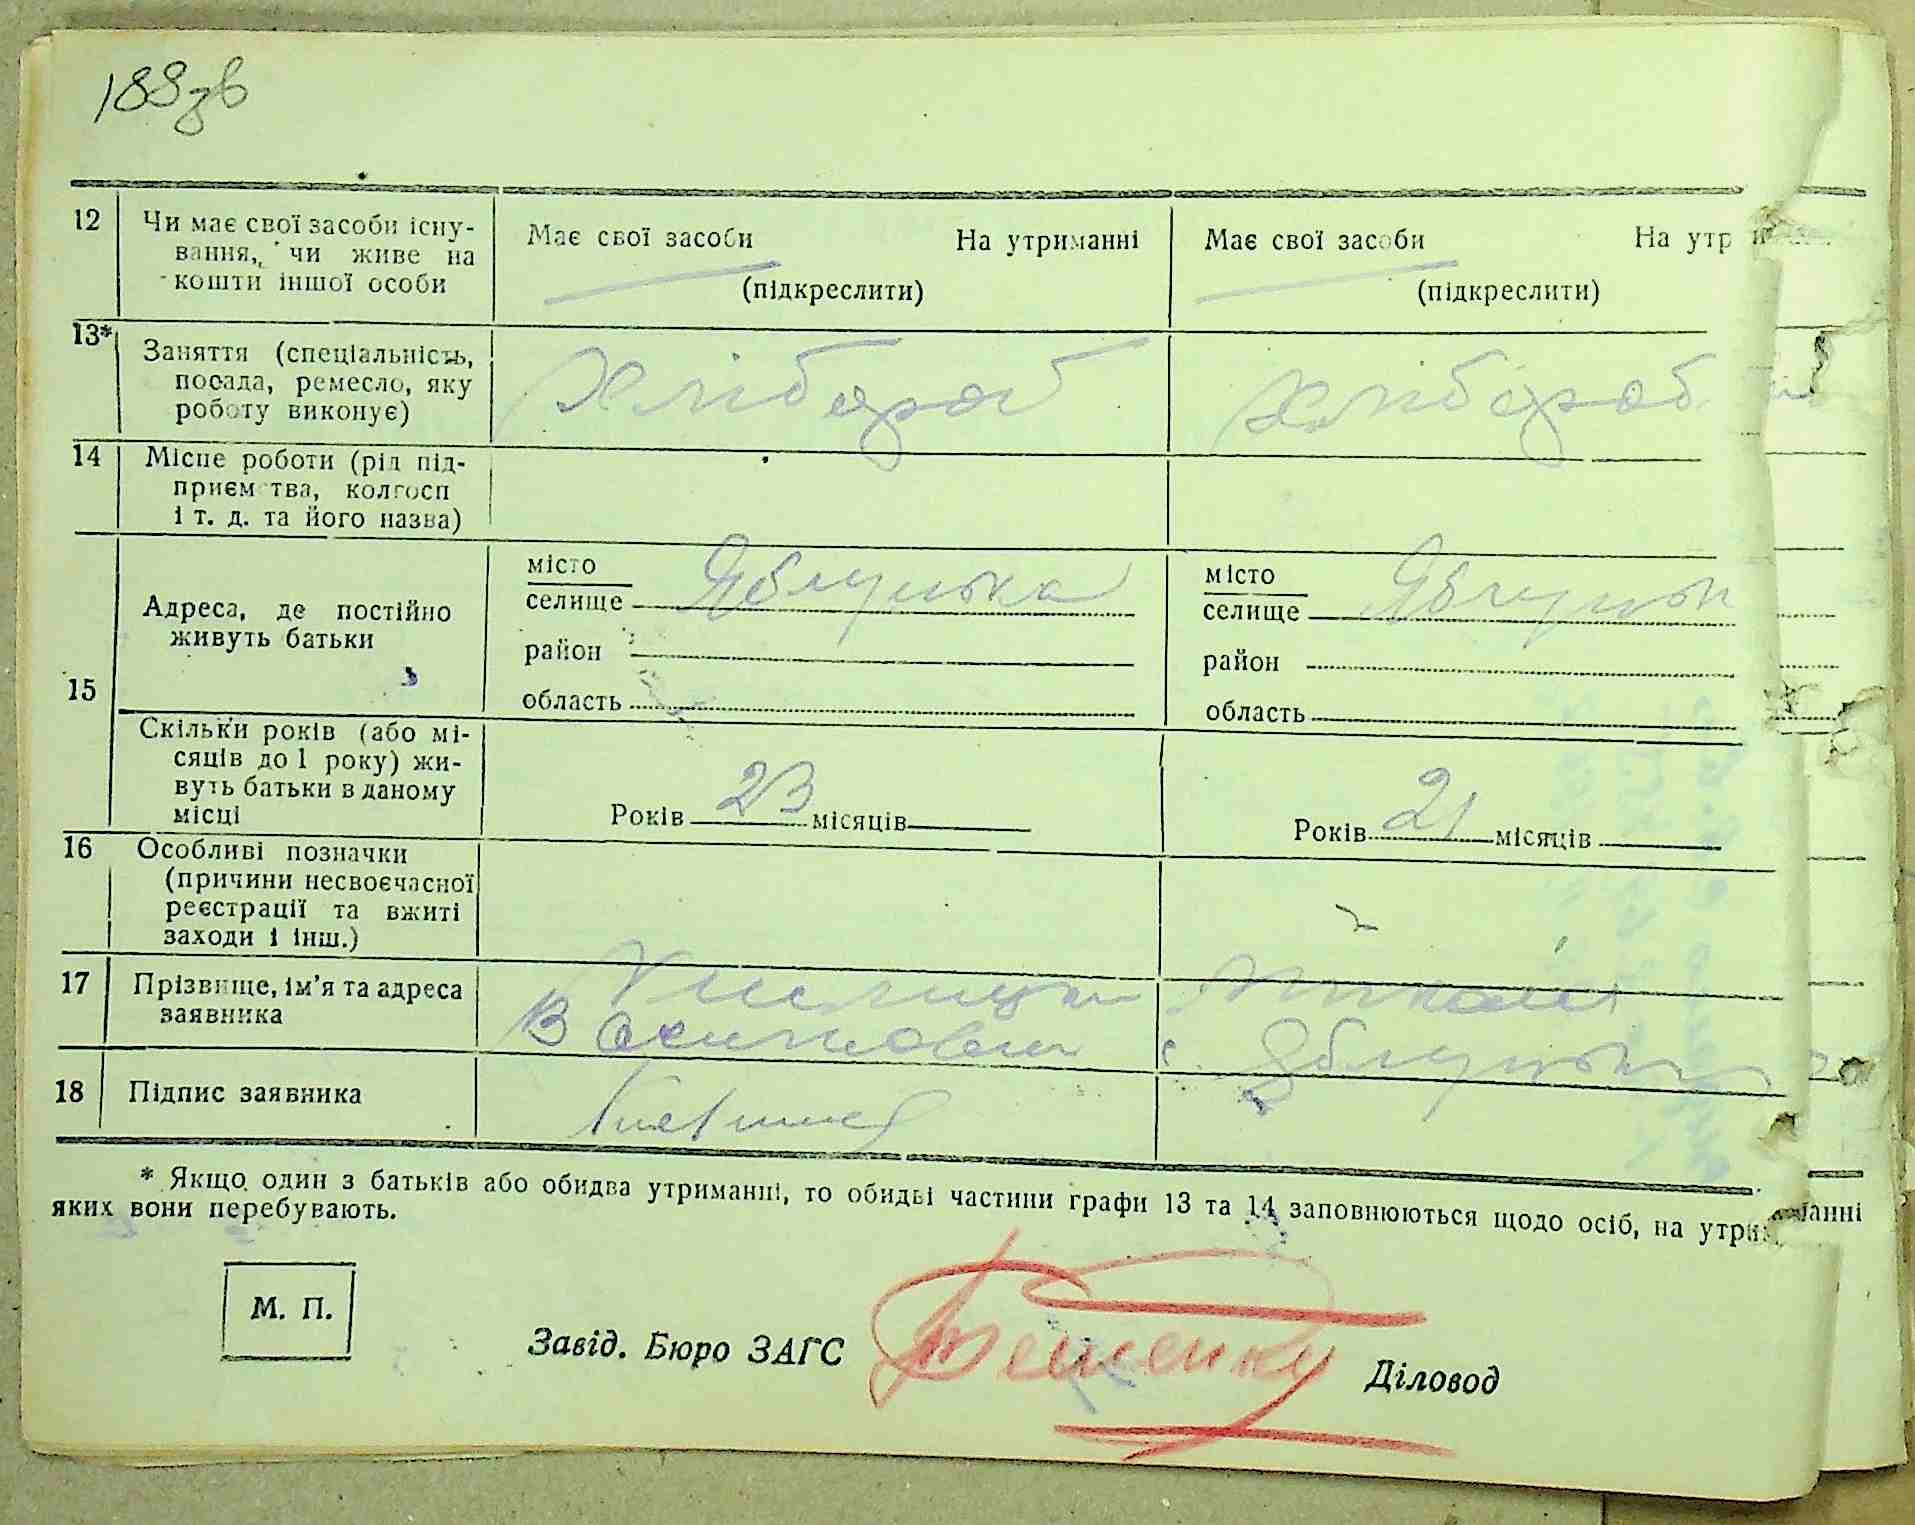 188зв
12 Чи має свої засоби існу-
вання, чи живе на
кошти іншої особи
Має свої засоби На утриманні
(підкреслити)
Має свої засоби На утр
(підкреслити)
13* Заняття (спеціальність,
посада, ремесло, яку
роботу виконує)
Хлібороб
Хлібороб
14 Місце роботи (рід під-
приємства, колгосп
і т. д. та його назва)
15 Адреса, де постійно
живуть батьки
місто
селище Яблунька
район
область
місто
селище Яблуньк
район
область
Скільки років (або мі-
сяців до 1 року) жи-
вуть батьки в даному
місці
Років 23 місяців
Років 21 місяців
16 Особливі позначки
(причини несвоєчасної
реєстрації та вжиті
заходи і інш.)
17 Прізвище, ім’я та адреса
заявника
с Яблунька
18 Підпис заявника
* Якщо один з батьків або обидва утриманні, то обидві частини графи 13 та 14 заповнюються щодо осіб, на утри анні
яких вони перебувають.
М. П.
Завід. Бюро ЗАГС
Діловод